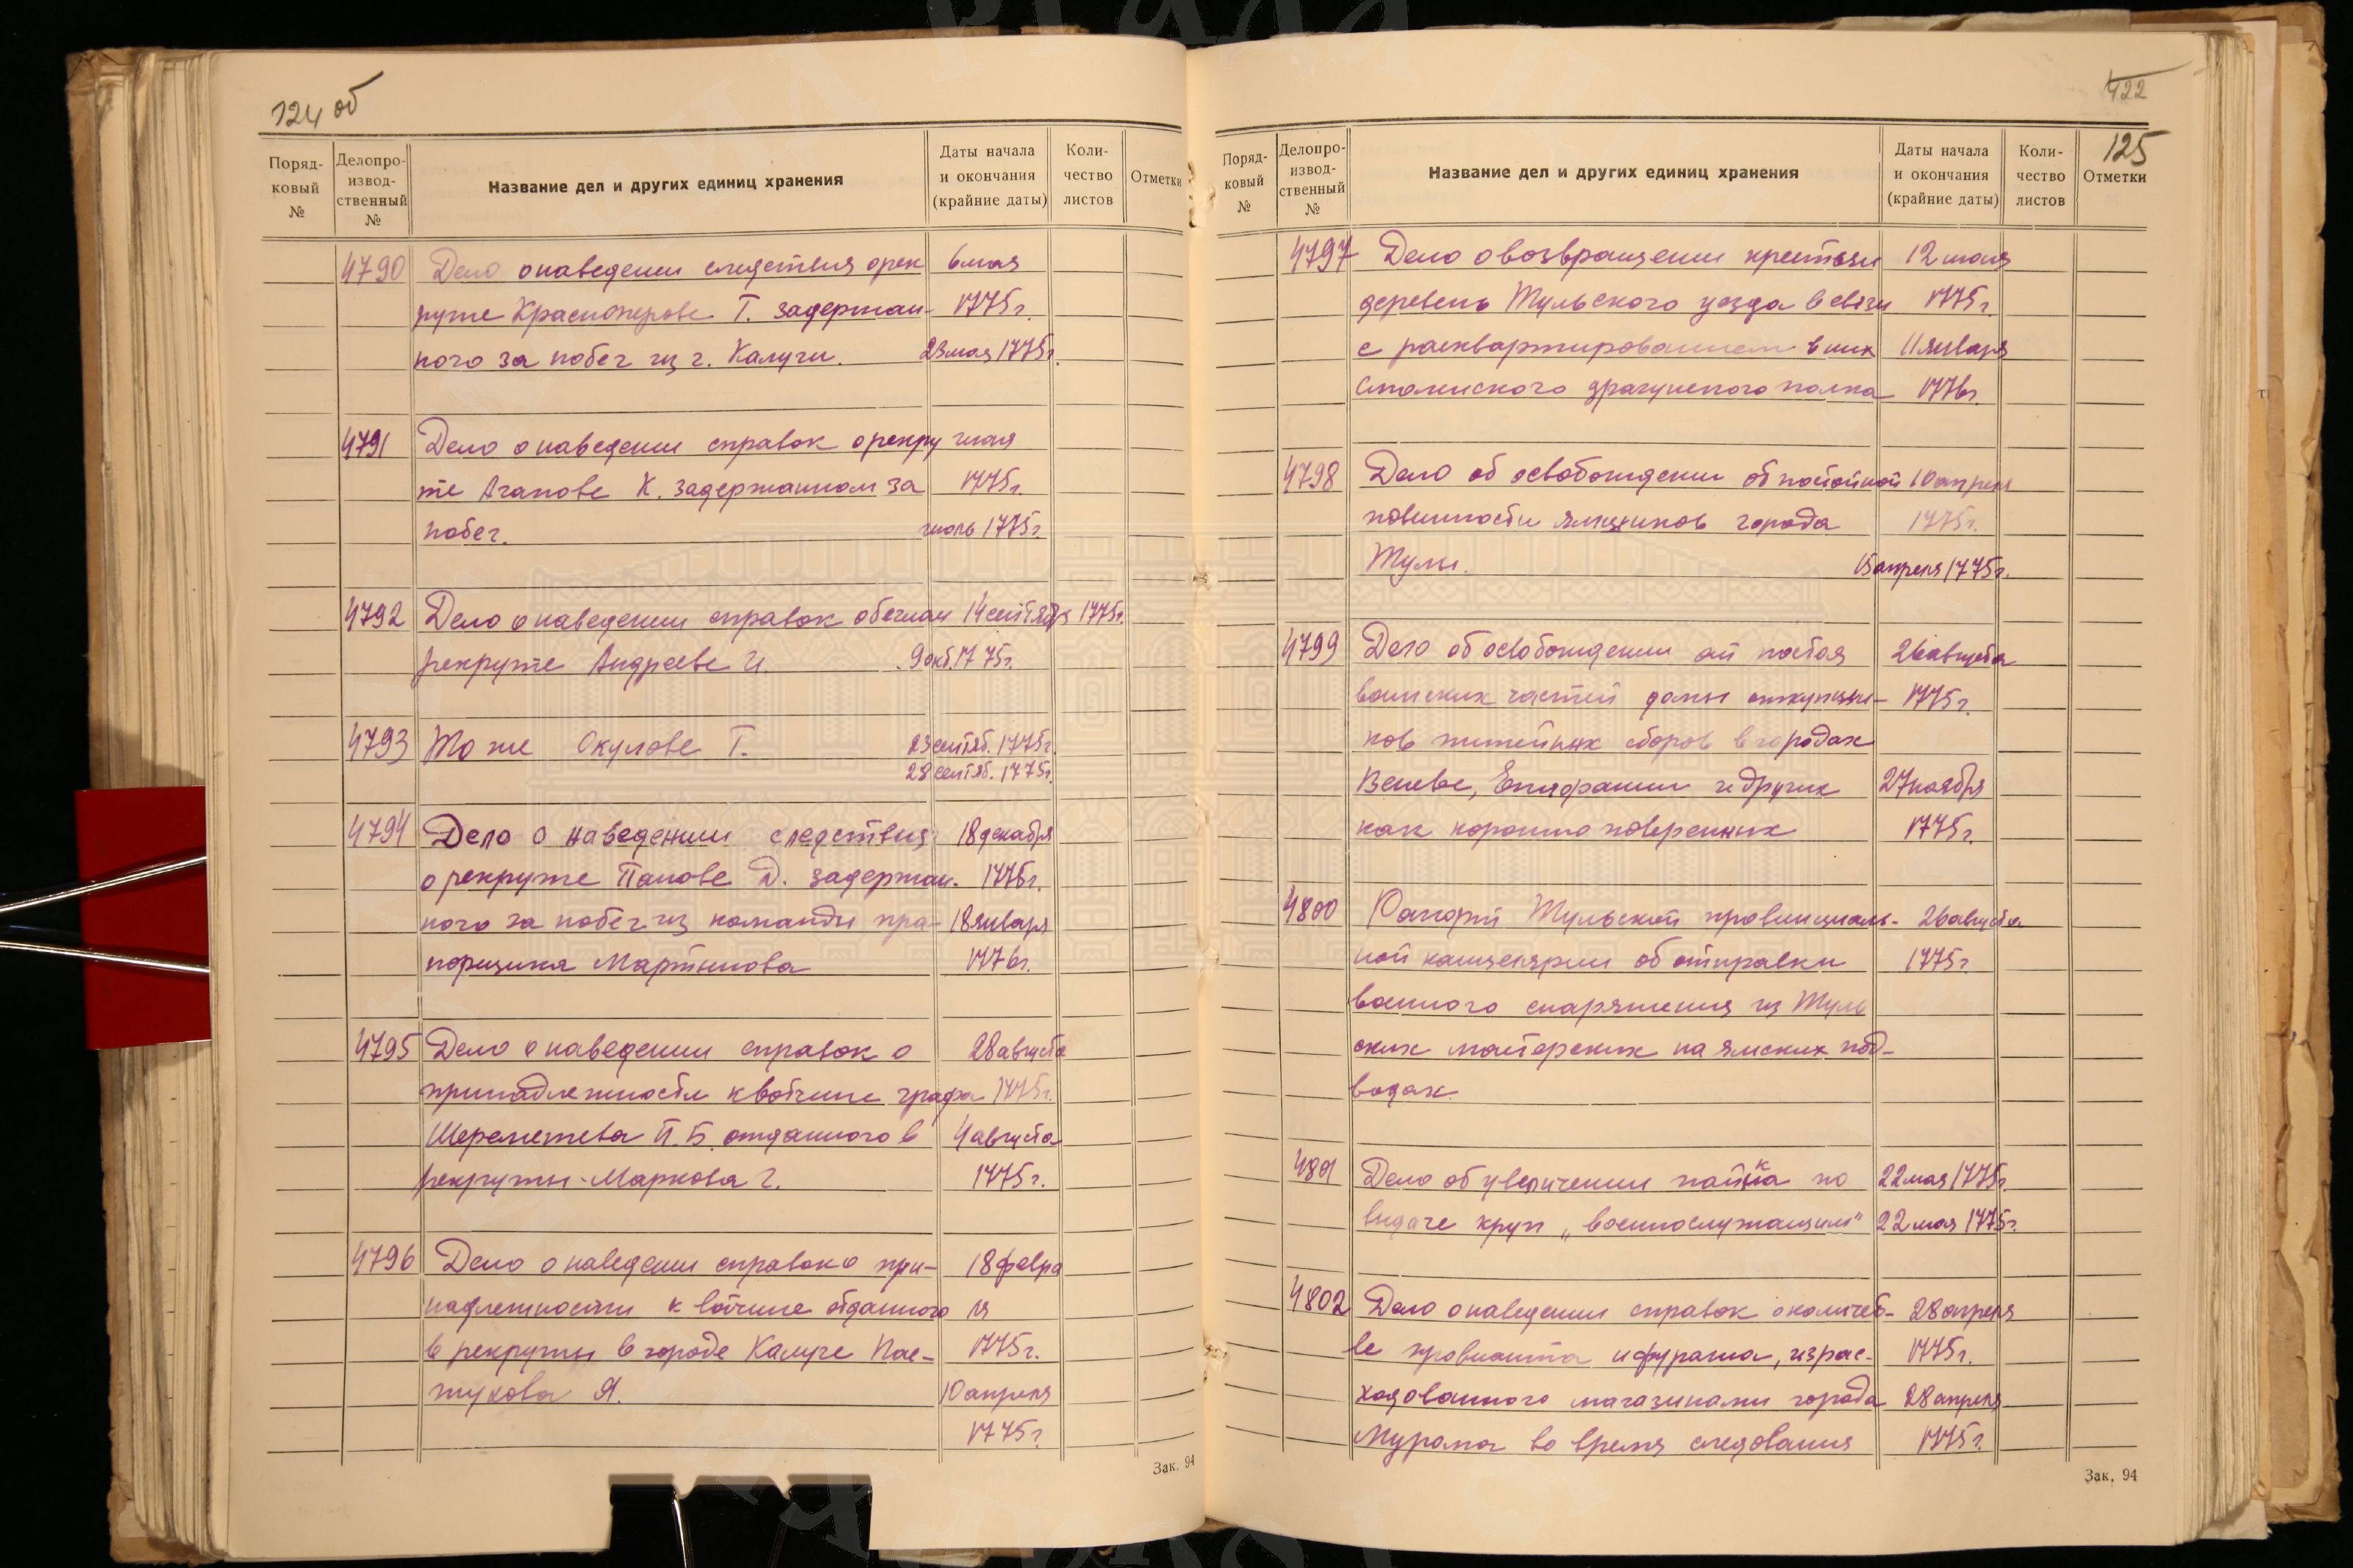 124 об
Поряд-
ковый
№
Делопро-
извод-
ственный
№
Название дел и других единиц хранения
Даты начала
и окончания
(крайние даты)
Коли-
чество
листов
Отметки
4790 Дело о наведении следствия о рек 6 мая
руте Красноперове Т. задержан- 1775 г.
ного за побег из г. Калуги. 23 мая 1775 г.
4791 Дело о наведении справок о рекру мая
те Агапове К. задержанном за 1775 г.
побег. июль 1775 г.
4792 Дело о наведении справок о беглом 14 сентября 1775 г.
рекруте Андрееве И. 9 окт. 1775 г.
4793 То же Окулове Т. 23 сентяб. 1775 г.
28 сентяб. 1775 г.
4794 Дело о наведении следствия 18 декабря
о рекруте Панове Д. задержан- 1775 г.
ного за побег из команды пра- 18 января
порщика Мартынова 1776 г.
4795 Дело о наведении справок о 28 августа
принадлежности к вотчине графа 1775 г.
Шереметева П. Б. отданного в 4 августа
рекруты Маркова Г. 1775 г.
4796 Дело о наведении справок о при- 18 февра
надлежности к вотчине отданного ля
в рекруты в городе Калуге Пас- 1775 г.
тухова Я. 10 апреля
1775 г.
Зак. 94
422
125
Поряд-
ковый
№
Делопро-
извод-
ственный
№
Название дел и других единиц хранения
Даты начала
и окончания
(крайние даты)
Коли-
чество
листов
Отметки
4797 Дело о возвращении крестьян 12 июля
деревень Тульского уезда в связи 1775 г.
с расквартированием в них 11 января
драгунского полка 1776 г.
4798 Дело об освобождении от постойной 10 апреля
повинности ямщиков города 1775 г.
Тулы. 15 апреля 1775 г.
4799 Дело об освобождении от постоя 26 августа
воинских частей домы откупщи- 1775 г.
ков питейных сборов в городах
Веневе, Епифании и других 27 ноября
как коронно поверенных 1775 г.
4800 Рапорт Тульской провинциаль- 26 августа
ной канцелярии об отправки 1775 г.
военного снаряжения из Туль
ских мастерских на ямских под-
водах.
4801 Дело об увеличении пайка по 22 мая 1775 г.
выдаче круп „военнослужащим" 22 мая 1775 г.
4802 Дело о наведении справок о количест- 28 апреля
ве провианта и фуража, израс- 1775 г.
ходованного магазинами города 28 апреля
Мурома во время следования 1775 г.
Зак. 94